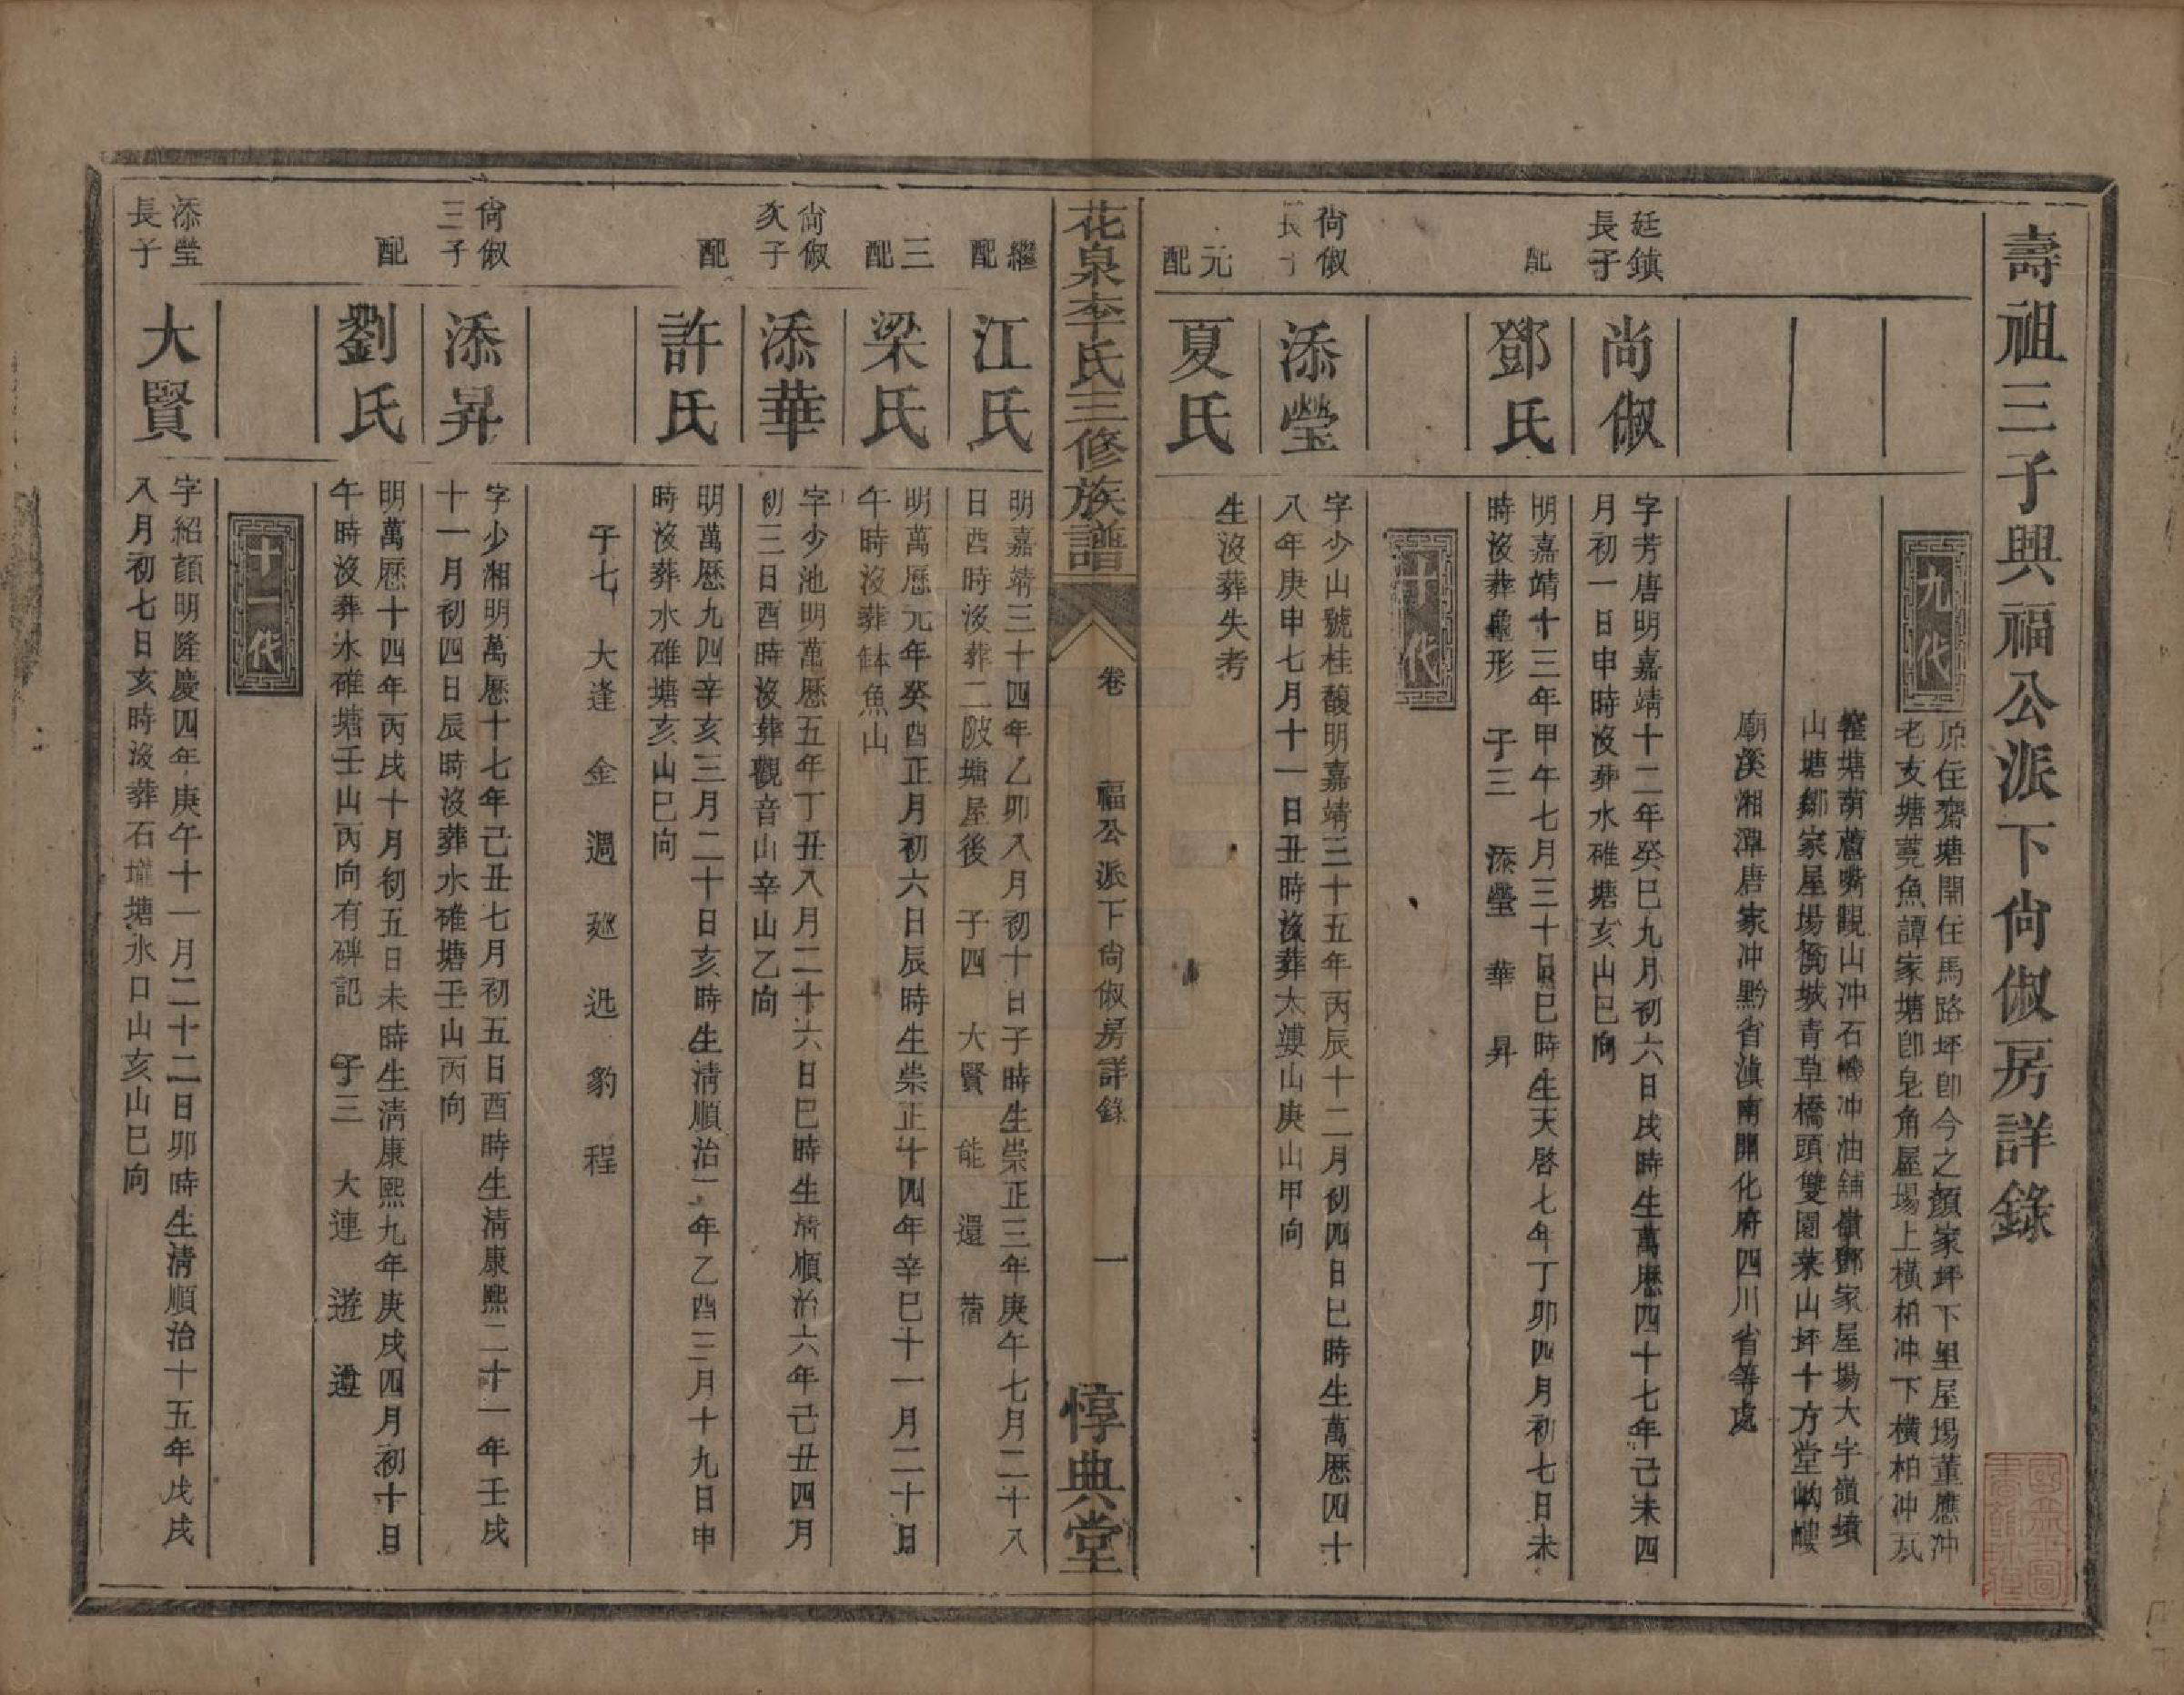 壽祖三子興福公派下尙俶房詳錄
九代
原住齋塘開住馬路坪卽今之顏家坪下里屋塲董應冲
老攴塘蕘魚譚家塘卽皂角屋塲上橫柏冲下橫柏冲瓦
塘葫蘆嘴觀山冲石磯冲油鋪嶺鄧家屋塲大字嶺墳
山塘鄉家屋塲衡城青草橋頭雙園菜山坪十方堂岣嶁
廟溪湘潭唐家冲黔省滇南開化府四川省等處
廷鎮
長子
尚俶
字芳唐明嘉靖十二年癸巳九月初六日戌時生萬厯四十七年己未四
月初一日申時沒葬水碓塘亥山巳向
配
鄧氏
明嘉靖十三年甲午七月三十日巳時生天啓七年丁卯四月初七日未
時沒葬龜形 子三 添瑩 華 昇
十代
尙俶
長子
添瑩
字少山號桂馥明嘉靖三十五年丙辰十二月初四日巳時生萬厯四十
八年庚申七月十一日丑時沒葬太婆山庚山甲向
元
配
夏氏
生沒葬失考
花泉李氏三修族譜
卷
福公派下尙俶房詳錄
一
惇典堂
繼
配
江氏
明嘉靖三十四年乙卯八月初十日子時生崇正三年庚午七月二十八
日酉時沒葬二陂塘屋後 子四 大賢 能 還
三
配
梁氏
明萬厯元年癸酉正月初六日辰時生崇正十四年辛巳十一月二十日
午時沒葬鉢魚山
尙俶
次子
添華
字少池明萬厯五年丁丑八月二十六日巳時生淸順治六年己丑四月
初三日酉時沒葬觀音山辛山乙向
配
許氏
明萬厯九四辛亥三月二十日亥時生淸順治二年乙酉三月十九日申
時沒葬水碓塘亥山巳向
子七 大逢 金 週 迯 迅 豹 程
尙俶
三子
添昇
字少湘明萬厯十七年己丑七月初五日酉時生淸康熙二十一年壬戌
十一月初四日辰時沒葬水碓塘壬山丙向
配
劉氏
明萬厯十四年丙戌十月初五日未時生淸康熙九年庚戌四月初十日
午時沒葬水碓塘壬山丙向有碑記 子三 大連 遊 遵
十一代
添瑩
長子
大賢
字紹顏明隆慶四年庚午十一月二十二日卯時生淸順治十五年戊戌
八月初七日亥時沒葬石壠塘水口山亥山巳向